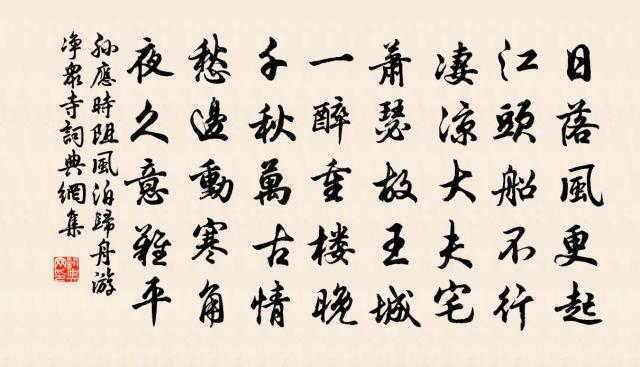 日落風更起
江頭船不行
淒涼大夫宅
蕭瑟故王城
一醉重楼晚
千秋萬古情
愁邊動寒角
夜久意難平
孫應時阻風泊歸舟游
净衆寺詞典網集